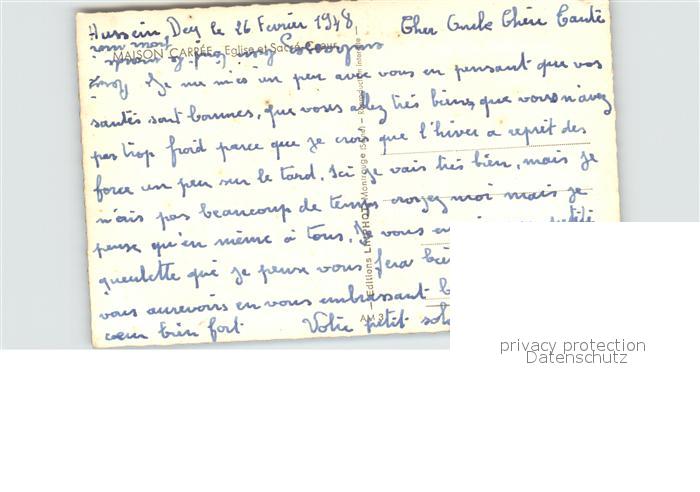 Hussein, Dey le 26 Fevrier 1948. Cher Oncle Chère Tante
MAISON CARRÉE - Eglise et Sacré-Coeur
Je me mies en peu avec vous en pensant que vos
santés sont bonnes, que vous allez très biens, que vous n'avez
pas trop froid parce que je crois que l'hiver a reprit des
force un peu sur le tard. Ici je vais très bien, mais je
n'ais pas beaucoup de temps croyez moi mais je
pense qu'en même à tous. Je vous
gueulette que je pense vous fera
vous aurevoirs en vous embrassant
cœur bien fort Votre petit
Editions LINPHOT Montrouge (Seine) - Reproduction interdite
AM 3
privacy protection
Datenschutz